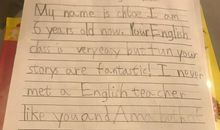 My name is chloe I am
6 years old now. Your English
class is very easy but fun your
storys are fantastic! I never
met a English teacher
like you and Ama